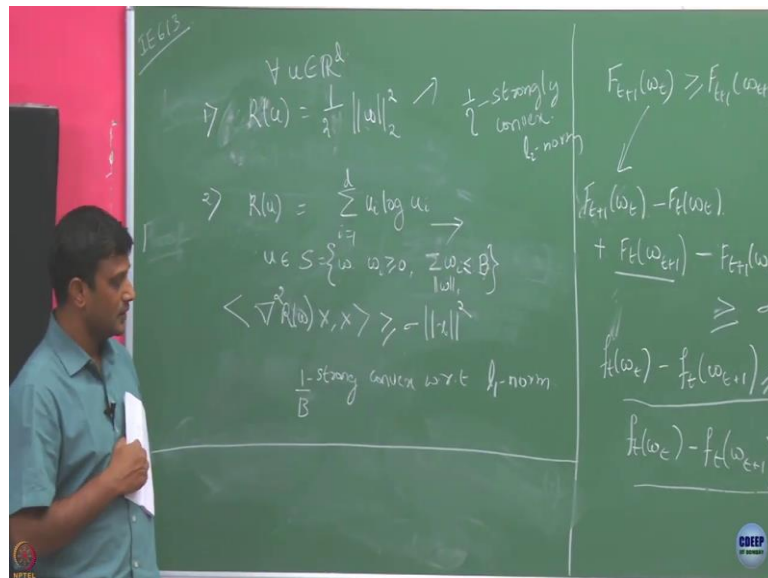 IE613
∀ u∈ℝᵈ
1) R(u) = 1/2 ||w||₂² ↗ 1/2-strongly
convex
l₂-norm
2) R(u) = Σᵢ₌₁ᵈ uᵢ log uᵢ
u ∈ S = {w: wᵢ ≥ 0, Σwᵢ ≤ B}
||w||₁
< ∇²R(w) x, x > ≥ σ||x||²
1/B-strong convex w.r.t l₁-norm
F_{t+1}(w_t) ≥ F_{t+1}(w_{t+
F_{t+1}(w_t) - F_t(w_t)
+ F_t(w_{t+1}) - F_{t+1}(w
≥ σ
f_t(w_t) - f_t(w_{t+1}) ≥
f_t(w_t) - f_t(w_{t+1}
NPTEL
CDEEP
IIT BOMBAY